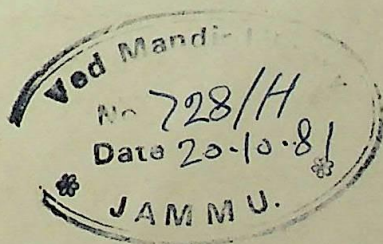 Ved Mandir
No 728/H
Date 20.10.81
JAMMU.